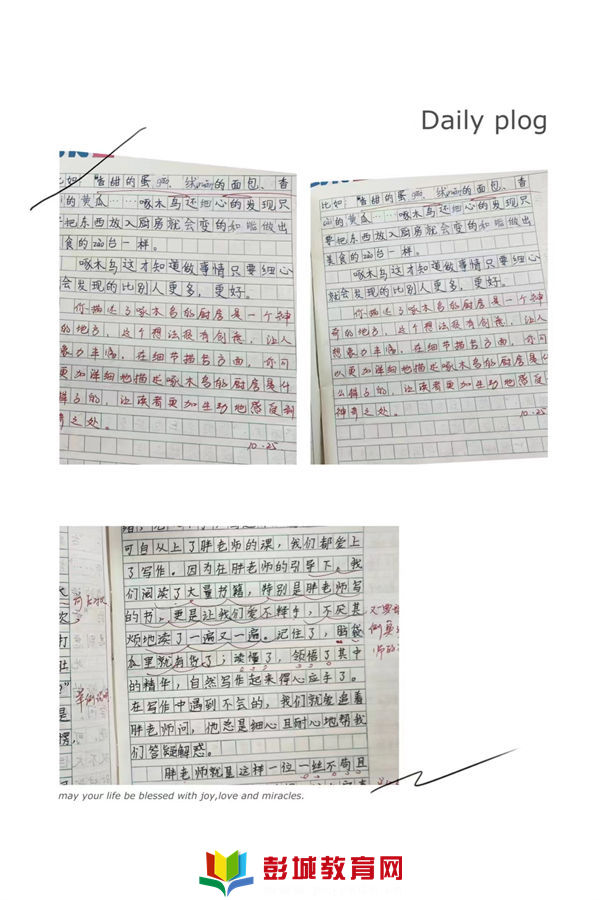 Daily plog
比如 "香甜的蛋gāo、线miàn的面包、香
的黄瓜……啄木鸟还细心的发现只
要把东西放入厨房就会变的和谐做出
美食的zào台一样。
啄木鸟这才知道做事情只要细心
会发现的比别人更多,更好。
你描述了啄木鸟的厨房是一个神
的地方,这个想法很有创意,让人
象力丰富,在细节描写方面,你可
更加详细地描述啄木鸟的厨房是什
样子的,让读者更加生动地感受到
奇之处。
10.25
比如 "香甜的蛋gāo、线miàn的面包、香
的黄瓜……啄木鸟还细心的发现只
要把东西放入厨房就会变的和谐做出
美食的zào台一样。
啄木鸟这才知道做事情只要细心
就会发现的比别人更多,更好。
你描述了啄木鸟的厨房是一个神
奇的地方,这个想法很有创意,让人
想象力丰富,在细节描写方面,你可
以更加详细地描述啄木鸟的厨房是什
么样子的,让读者更加生动地感受到
神奇之处。
10.25
可自从上了胖老师的课,我们都爱上
了写作。因为在胖老师的引导下,我
们阅读了大量书籍,特别是胖老师写
的书,更是让我们爱不释手,不厌其
烦地读了一遍又一遍。记住了,脑袋
瓜里就有货了;读懂了,领悟了其中
的精华,自然写作起来得心应手了。
在写作中遇到不会的,我们就爱追着
胖老师问,他总是细心且耐心地帮我
们答疑解惑。
胖老师就是这样一位一丝不苟且
may your life be blessed with joy,love and miracles.
彭城教育网